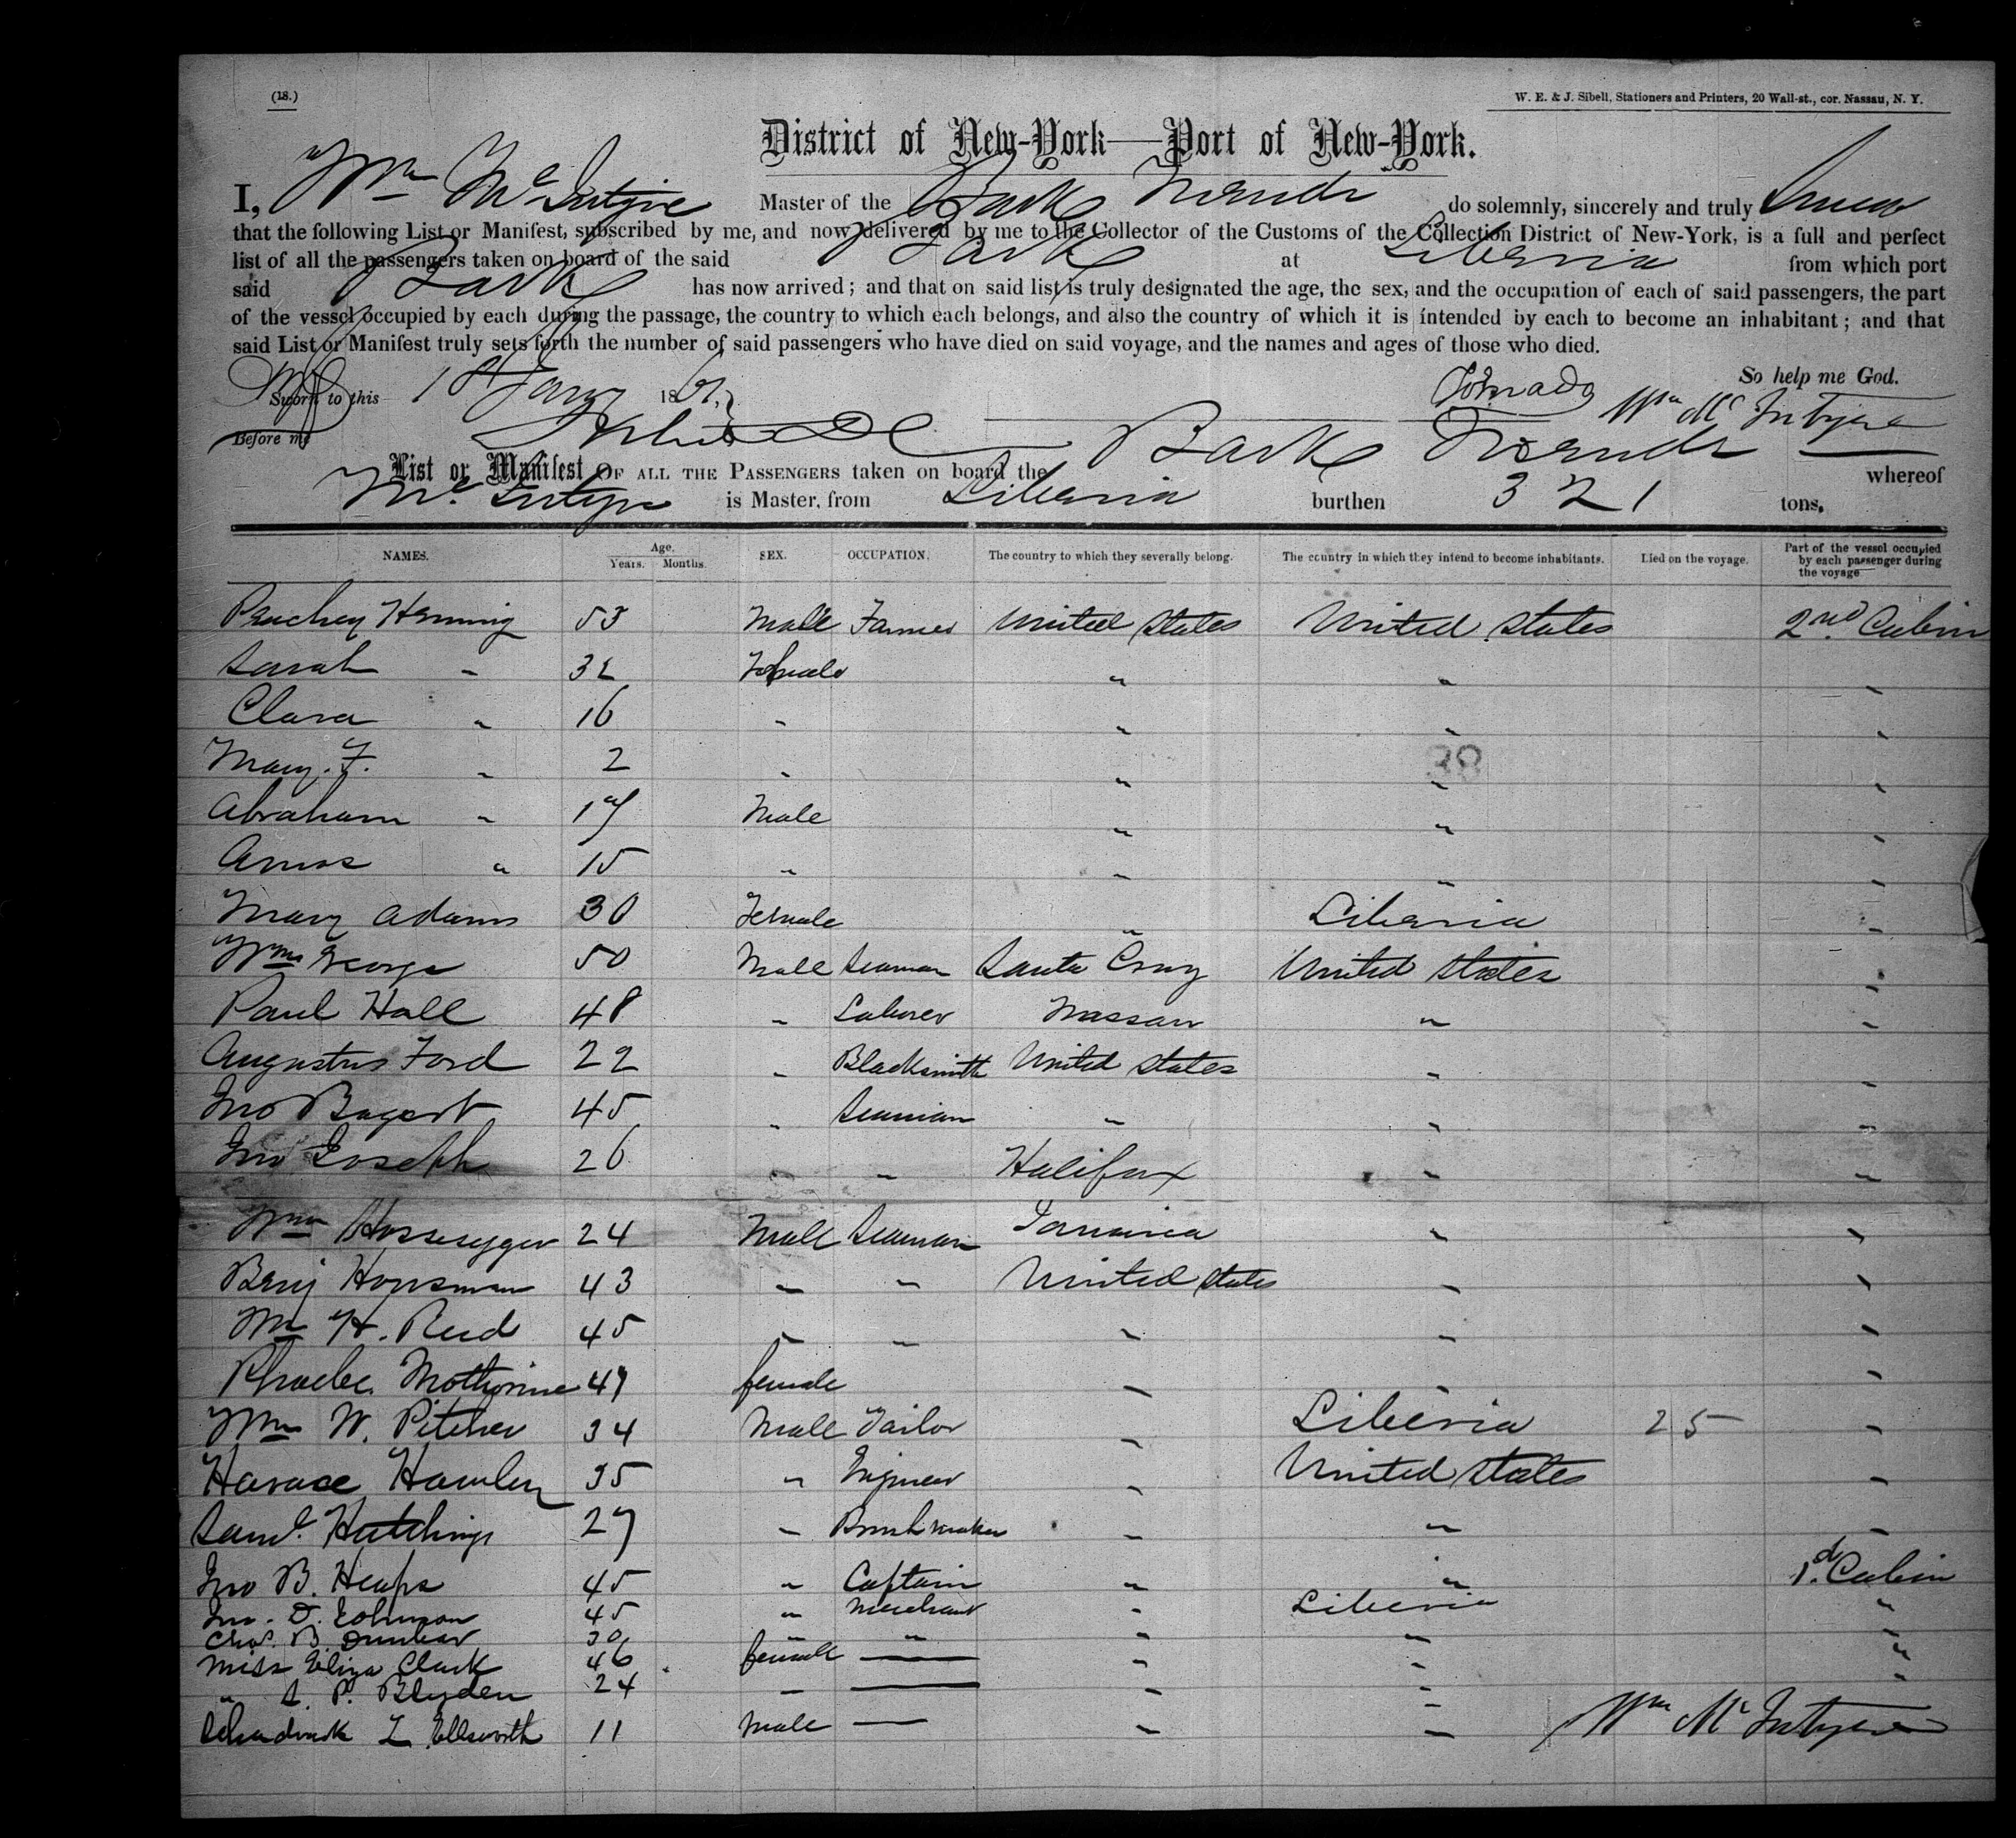 (18.)
W. E. & J. Sibell, Stationers and Printers, 20 Wall-st., cor. Nassau, N. Y.
District of New-York—Port of New-York.
I, Wm McIntyre Master of the Bark do solemnly, sincerely and truly Swear
that the following List or Manifest, subscribed by me, and now delivered by me to the Collector of the Customs of the Collection District of New-York, is a full and perfect
list of all the passengers taken on board of the said Bark at Liberia from which port
said Bark has now arrived; and that on said list is truly designated the age, the sex, and the occupation of each of said passengers, the part
of the vessel occupied by each during the passage, the country to which each belongs, and also the country of which it is intended by each to become an inhabitant; and that
said List or Manifest truly sets forth the number of said passengers who have died on said voyage, and the names and ages of those who died.
So help me God.
Sworn to this 186
Wm McIntyre
Before me
List or Manifest OF ALL THE PASSENGERS taken on board the Bark whereof
McIntyre is Master, from Liberia burthen 321 tons.
NAMES. Age. Years. Months. SEX. OCCUPATION. The country to which they severally belong. The country in which they intend to become inhabitants. Died on the voyage. Part of the vessel occupied by each passenger during the voyage
Peachey Henning 53 Male Farmer United States United States 2nd Cabin
Sarah " 32 Female " " "
Clara " 16 " " " "
Mary. F. " 2 " " " "
38
Abraham " 17 Male " " "
Amos " 15 " " " "
Mary Adams 30 Female " Liberia "
Wm George 50 Male Seaman Santa Cruz United States "
Paul Hall 48 " Laborer Nassau " "
Augustus Ford 22 " Blacksmith United States " "
Jno Bogert 45 " Seaman " " "
Jno Joseph 26 " " Halifax " "
Wm 24 Male Seaman Jamaica " "
Benj Housman 43 " " United States " "
Wm H. Reed 45 " " " " "
Phoebe 49 female " " "
Wm W. Pitcher 34 Male Tailor " Liberia 25 "
Horace Hawley 35 " Engineer " United States "
Saml. Hutchings 27 " Brushmaker " " "
Jno B. Heaps 45 " Captain " " 1st Cabin
Jno. D. Johnson 45 " Merchant " Liberia "
Chas. B. Dunbar 30 " " " " "
Miss Eliza Clark 46 female — " " "
" S. P. Blyden 24 " — " "
L Ellsworth 11 Male — " "
Wm McIntyre